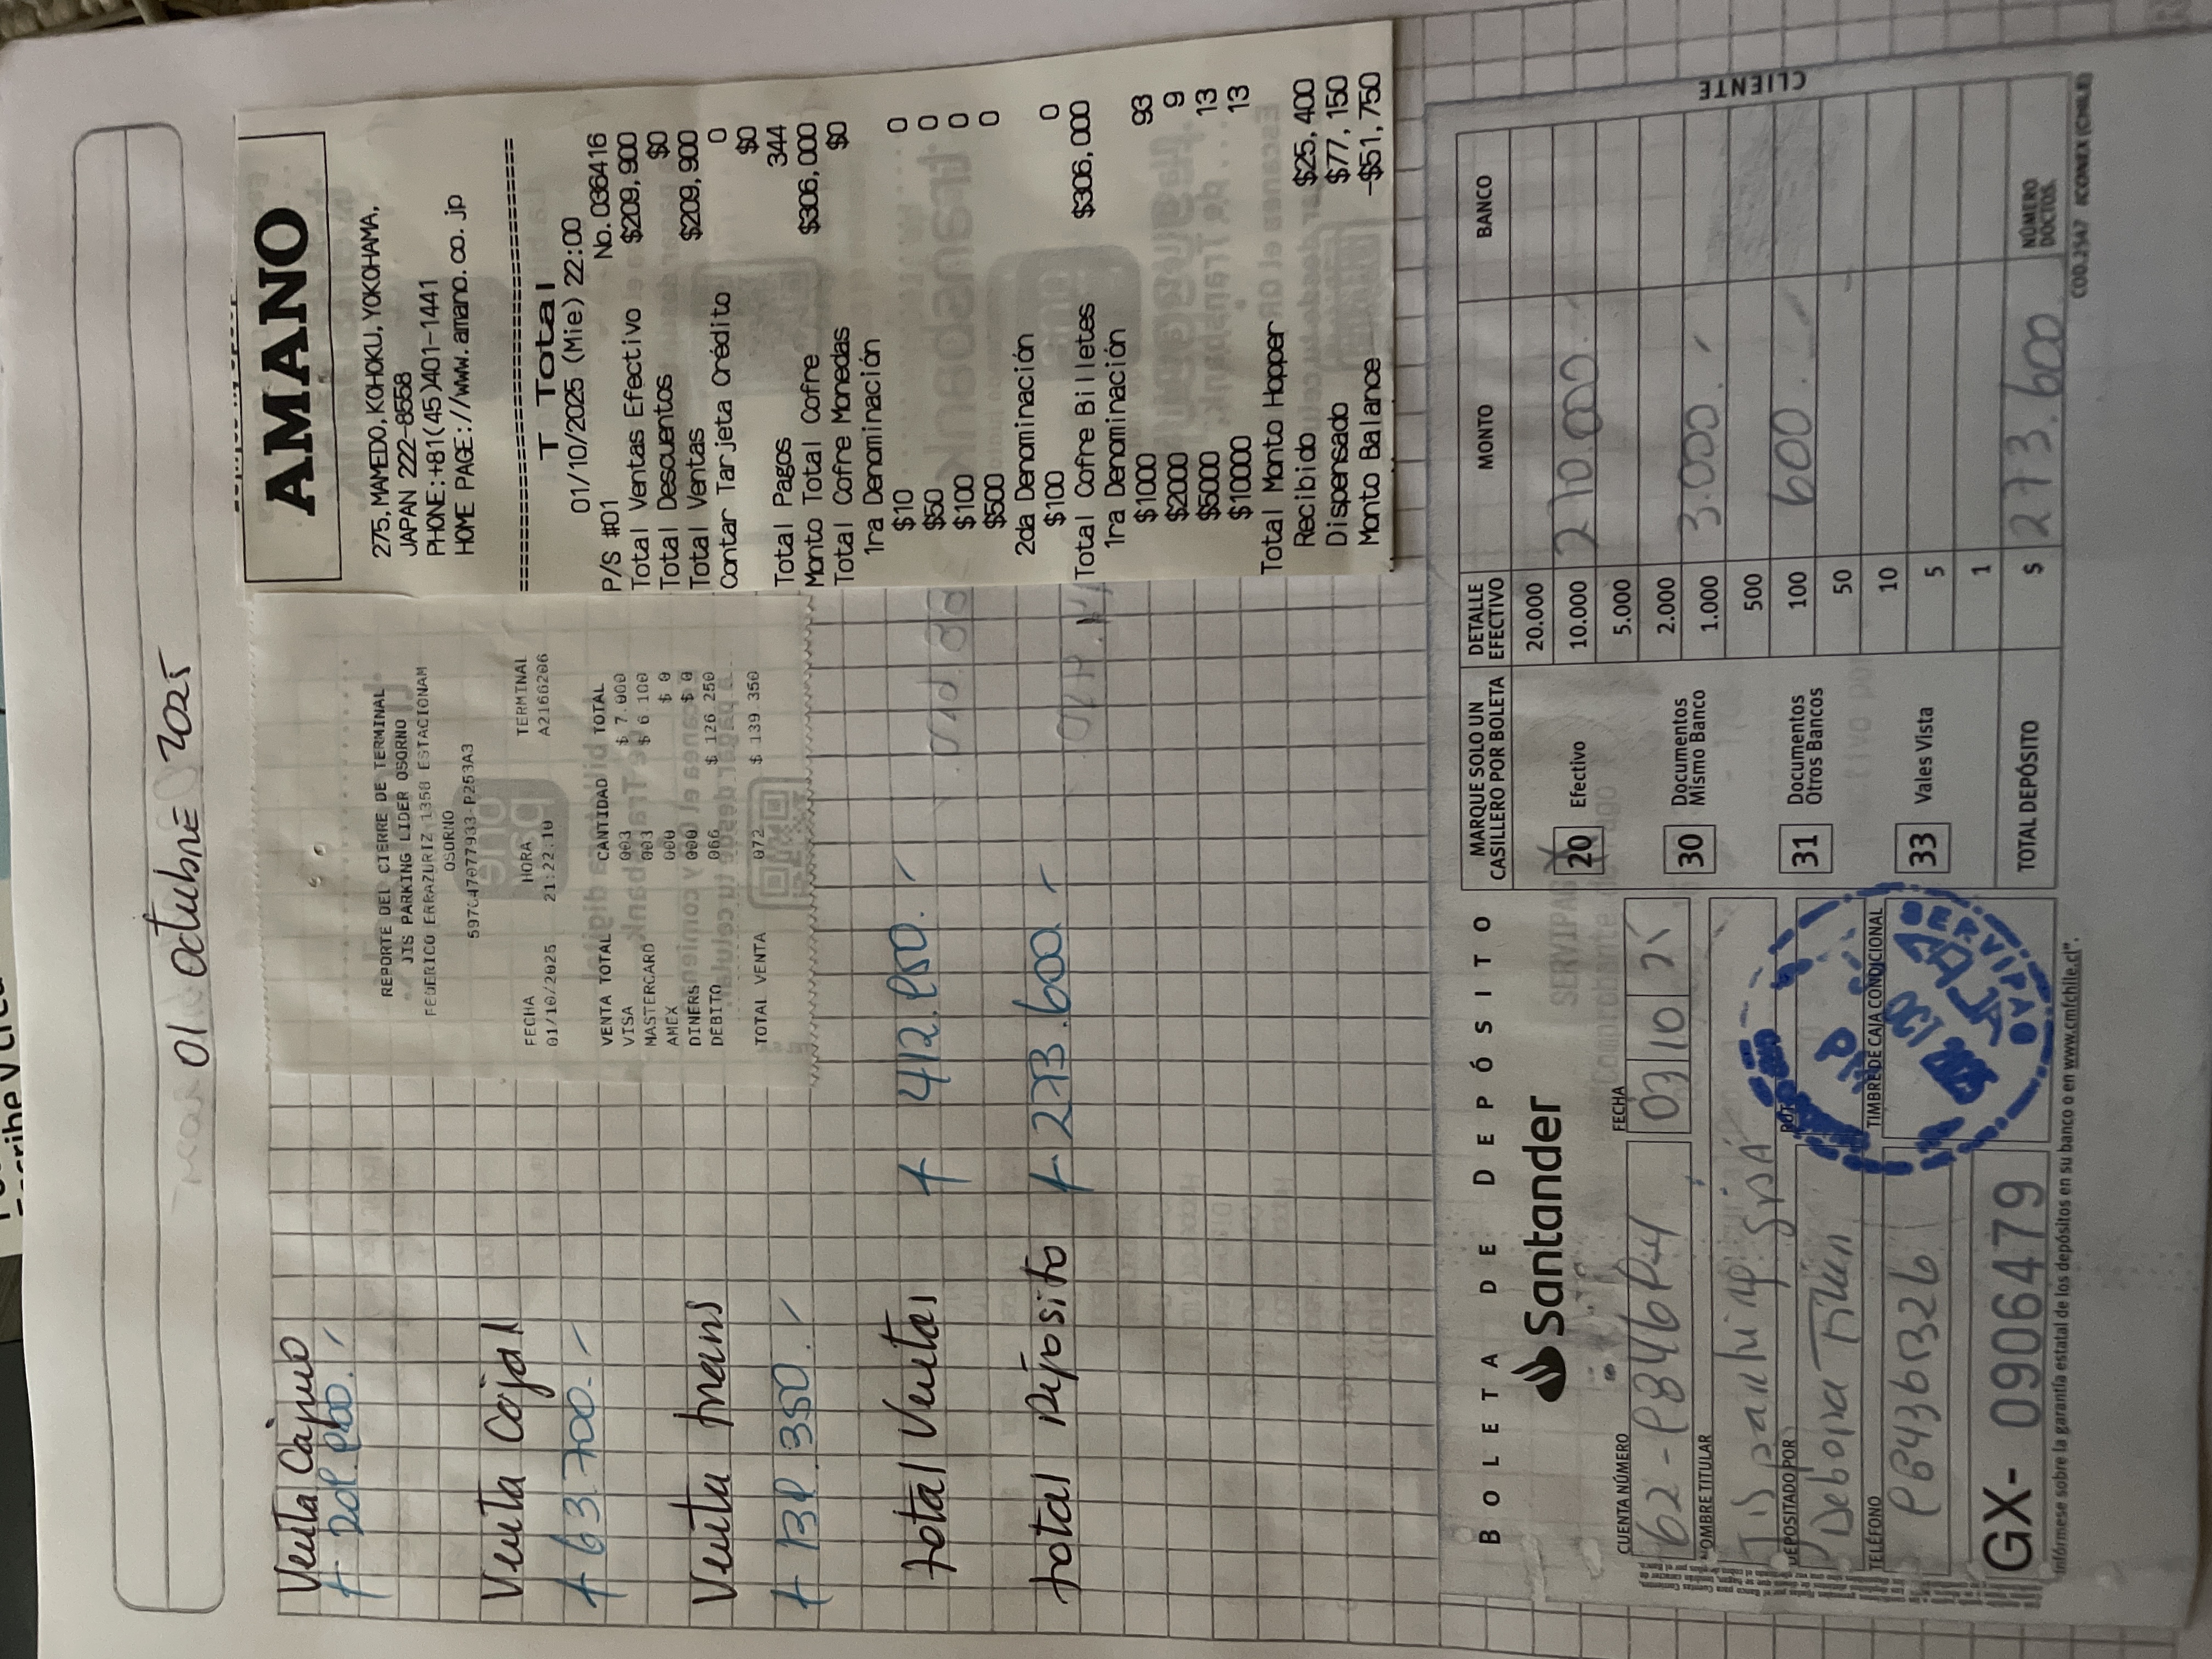 01 Octubre 2025
Venta Cajero
209.900.
Venta Caja 1
63.700.-
Venta trans
139.350.
total Ventas
412.950.
total Deposito
273.600.
REPORTE DEL CIERRE DE TERMINAL
JIS PARKING LIDER OSORNO
FEDERICO ERRAZURIZ 1350 ESTACIONAM
OSORNO
FECHA HORA TERMINAL
01/10/2025 21:22.10 A2166206
VENTA TOTAL CANTIDAD TOTAL
VISA 003 $ 7.000
MASTERCARD 003 $ 6.100
AMEX 000 $ 0
DINERS 000 $ 0
DEBITO 066 $ 126.250
TOTAL VENTA 072 $ 139.350
AMANO
275, MAMEDO, KOHOKU, YOKOHAMA,
JAPAN 222-8558
PHONE:+81(45)401-1441
HOME PAGE://www.amano.co.jp
T Total
01/10/2025 (Mie) 22:00
P/S #01 No.036416
Total Ventas Efectivo $209,900
Total Descuentos $0
Total Ventas $209,900
Contar Tarjeta Crédito 0
$0
Total Pagos 344
Monto Total Cofre $306,000
Total Cofre Monedas $0
1ra Denominación
$10 0
$50 0
$100 0
$500 0
2da Denominación
$100 0
Total Cofre Billetes $306,000
1ra Denominación
$1000 93
$2000 9
$5000 13
$10000 13
Total Monto Hopper
Recibido $25,400
Dispensado $77,150
Monto Balance -$51,750
BOLETA DE DEPÓSITO
Santander
CUENTA NÚMERO
FECHA
03 10 25
NOMBRE TITULAR
DEPOSITADO POR
TELÉFONO
TIMBRE DE CAJA CONDICIONAL
GX- 0906479
MARQUE SOLO UN
CASILLERO POR BOLETA
20 Efectivo
30 Documentos
Mismo Banco
31 Documentos
Otros Bancos
33 Vales Vista
TOTAL DEPÓSITO
DETALLE
EFECTIVO MONTO BANCO
20.000
10.000 270.000
5.000
2.000
1.000 3.000
500
100 600
50
10
5
1
$ 273.600
NÚMERO
DOCTOS.
CLIENTE
Infórmese sobre la garantía estatal de los depósitos en su banco o en www.cmfchile.cl".